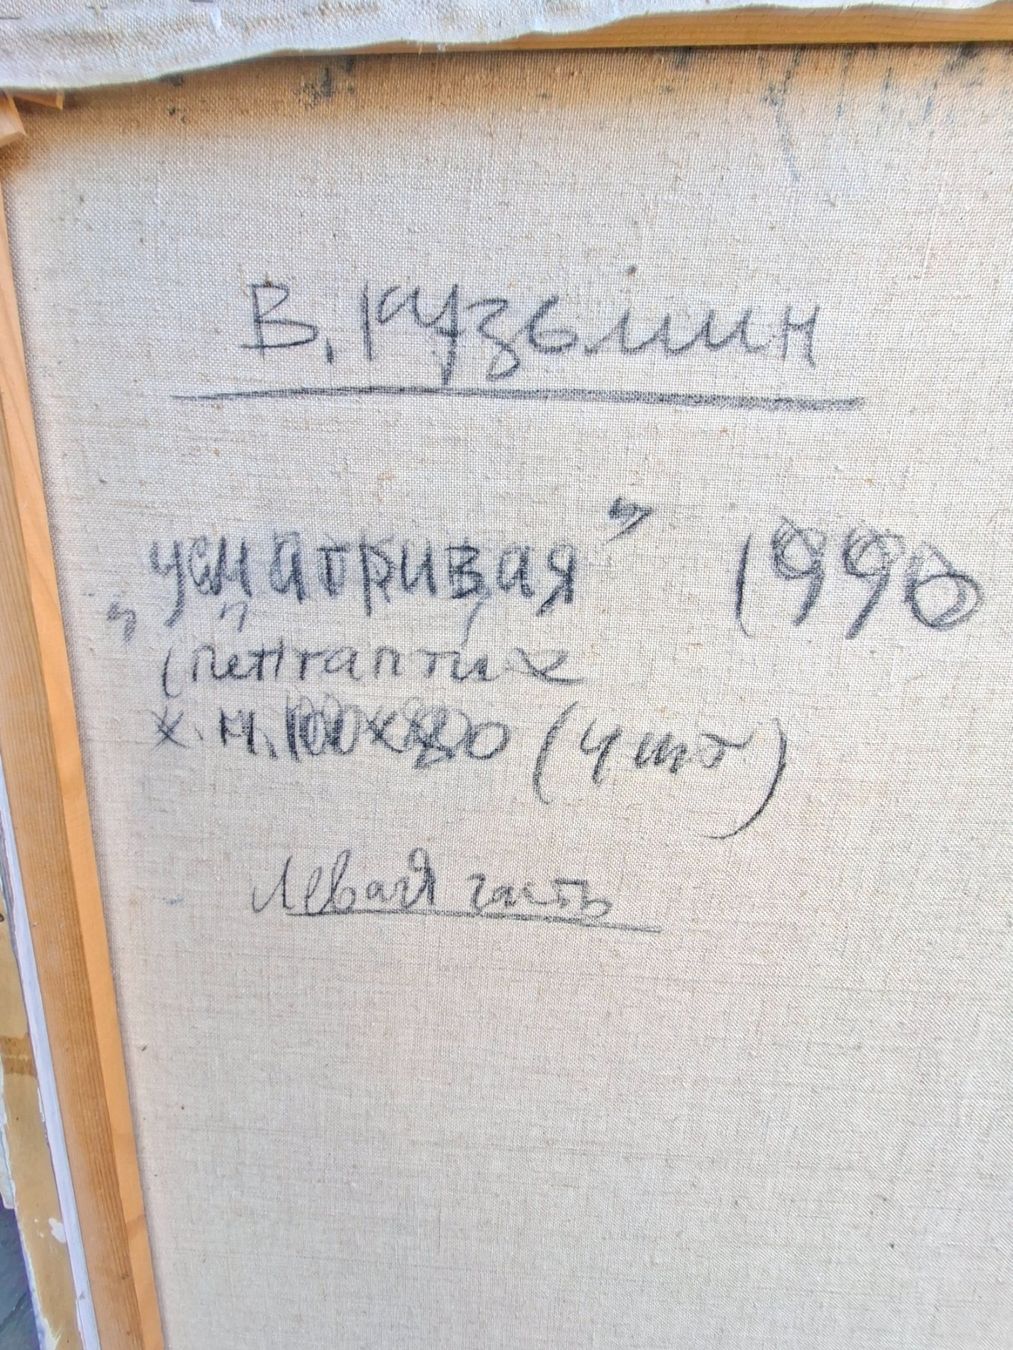 В. Кузьмин
"усматривая" 1990
(пентаптих
х.м. 100х80 (4 шт)
Левая часть